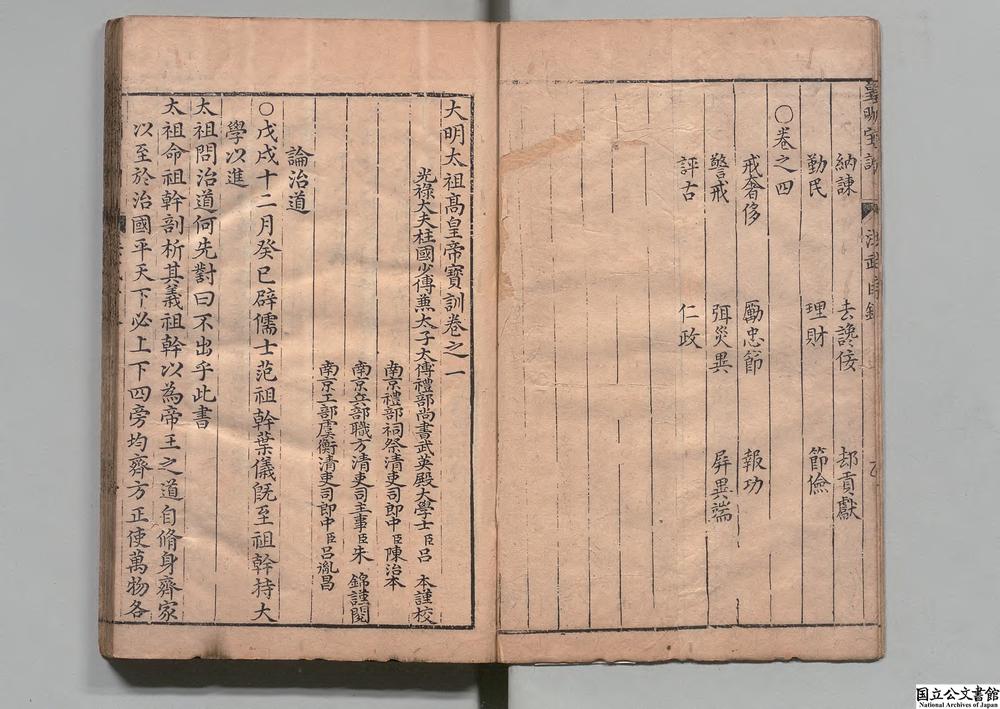 納諫　去讒佞　却貢獻
勤民　理財　節儉
○卷之四
戒奢侈　勵忠節　報功
警戒　弭災異　屏異端
評古　仁政
大明太祖髙皇帝寶訓卷之一
光祿大夫柱國少傅兼太子太傅禮部尚書武英殿大學士臣呂　本謹校
南京禮部祠祭清吏司郎中臣陳治本
南京兵部職方清吏司主事臣朱　錦謹閱
南京工部虞衡清吏司郎中臣呂胤昌
論治道
○戊戌十二月癸巳辟儒士范祖幹葉儀旣至祖幹持大
學以進
太祖問治道何先對曰不出乎此書
太祖命祖幹剖析其義祖幹以為帝王之道自脩身齊家
以至於治國平天下必上下四旁均齊方正使萬物各
国立公文書館
National Archives of Japan